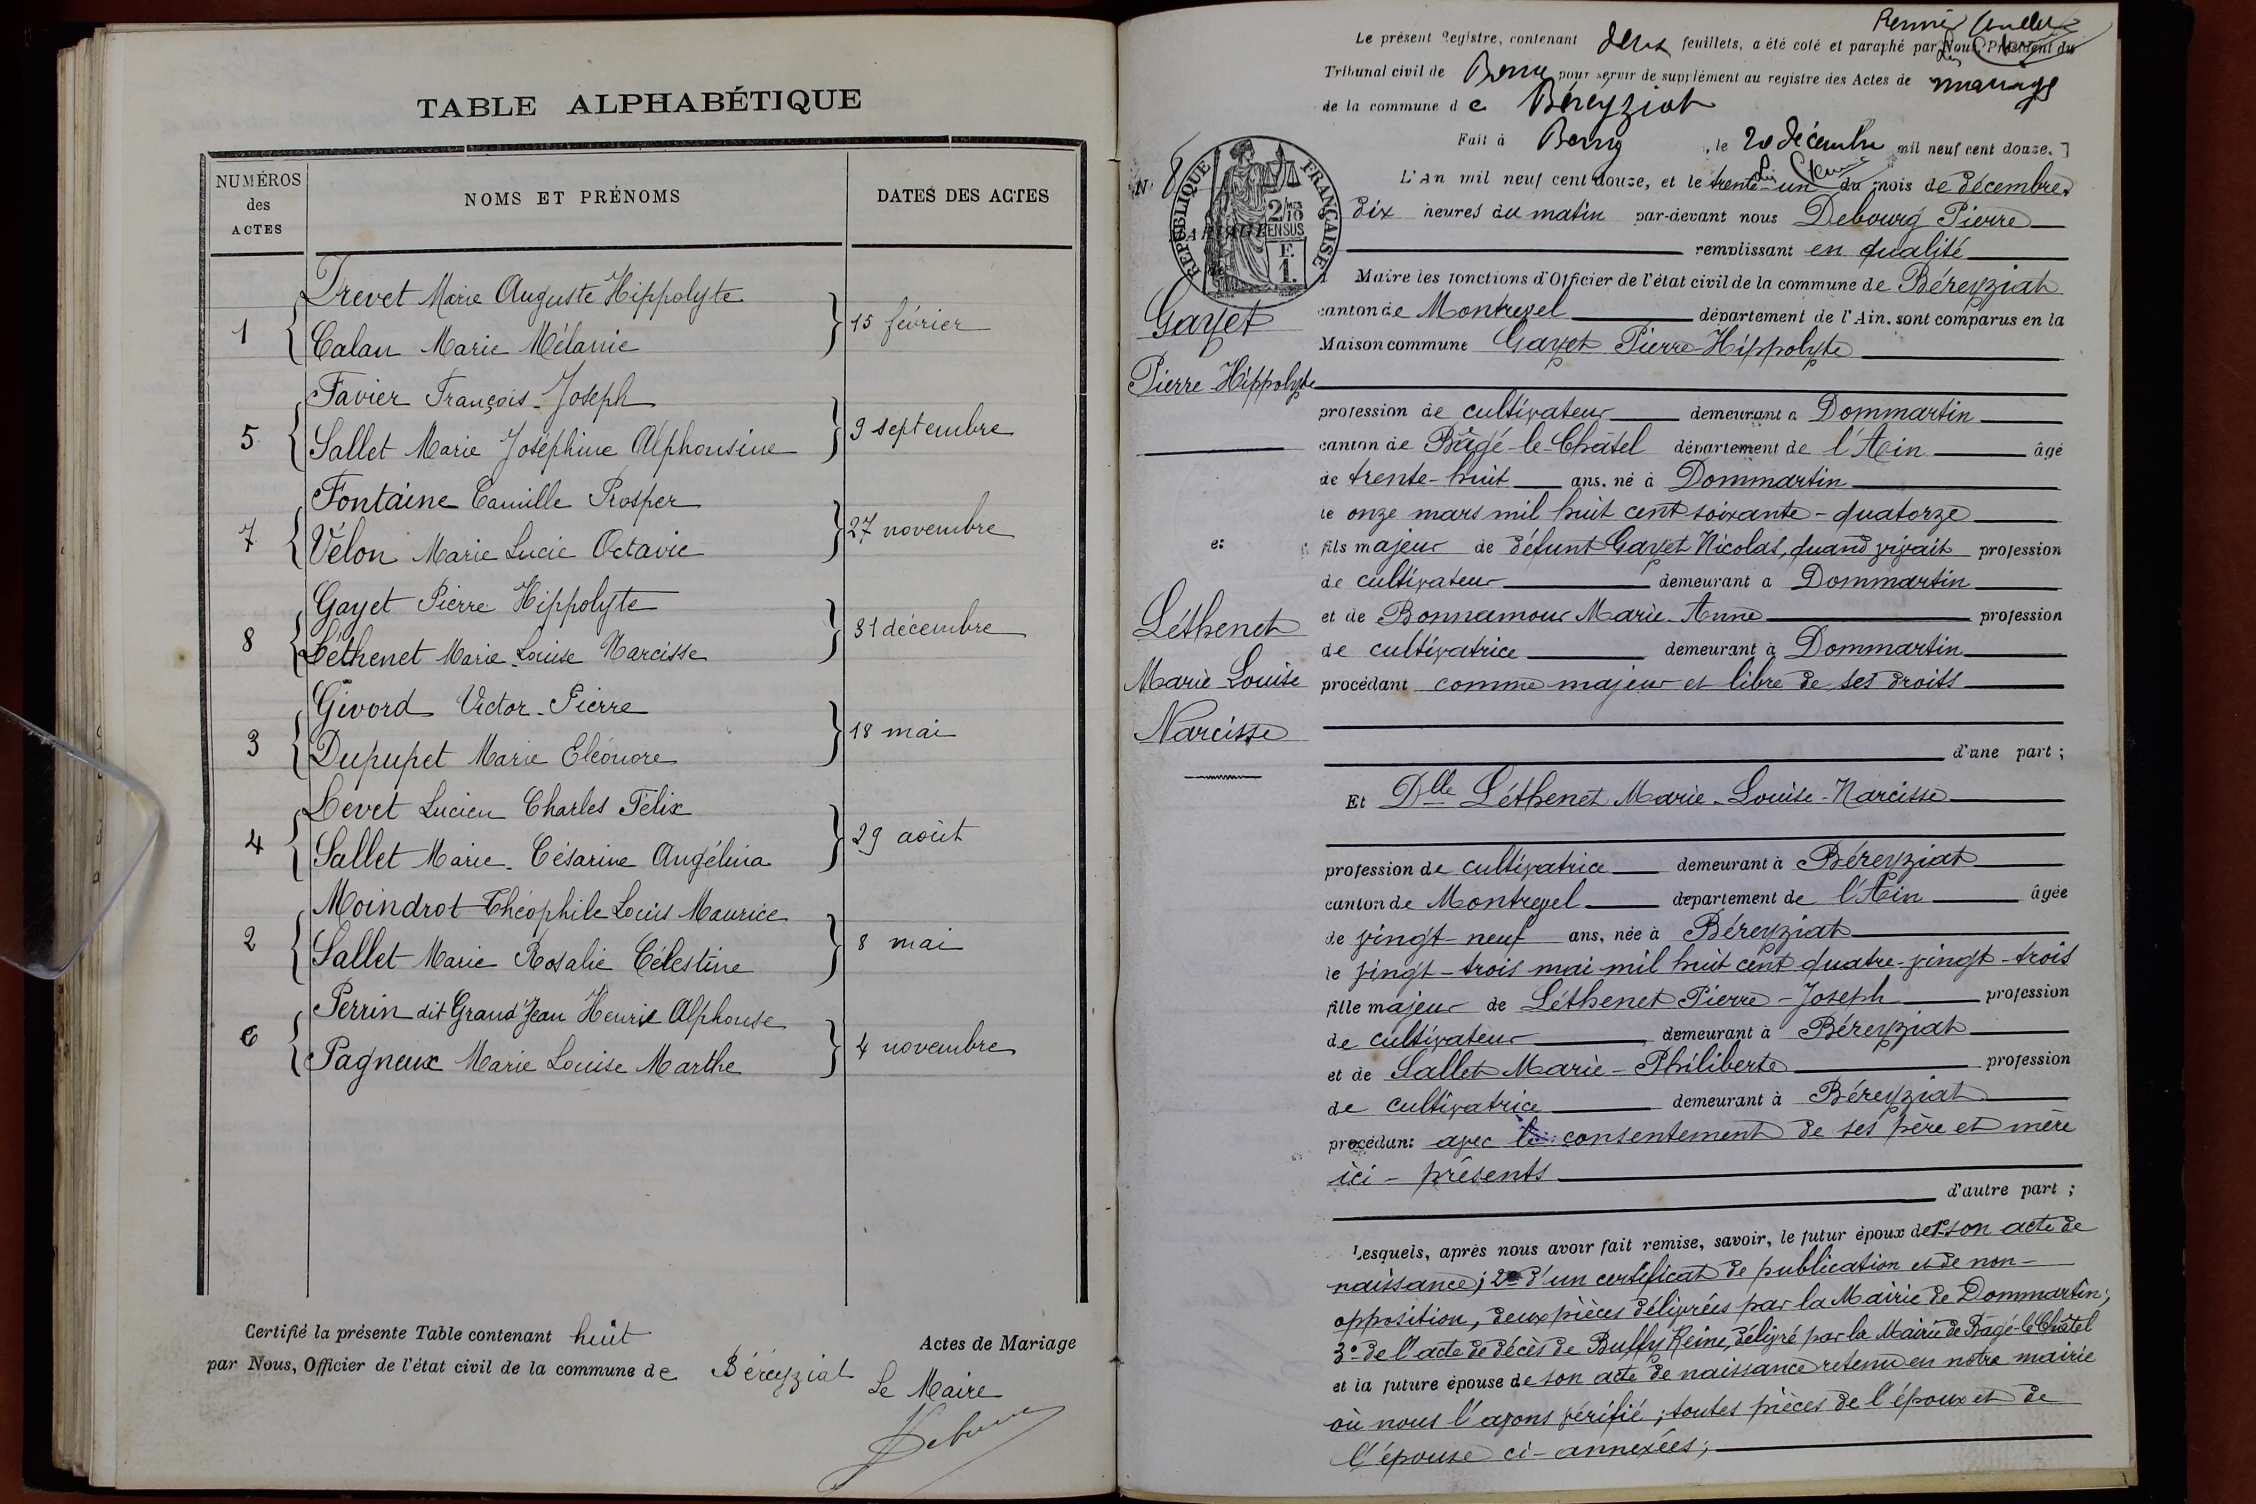 TABLE ALPHABÉTIQUE
NUMÉROS des ACTES
NOMS ET PRÉNOMS
DATES DES ACTES
1
Trevet Marie Auguste Hippolyte
Calan Marie Mélanie
15 février
5
Favier François-Joseph
Sallet Marie Joséphine Alphonsine
9 septembre
7
Fontaine Camille Prosper
Vélon Marie Lucie Octavie
27 novembre
8
Gayet Pierre Hippolyte
Léthenet Marie Louise Narcisse
31 décembre
3
Givord Victor-Pierre
Dupupet Marie Eléonore
18 mai
4
Levet Lucien Charles Félix
Sallet Marie-Césarine Angélina
29 août
2
Moindrot Théophile Louis Maurice
Sallet Marie Rosalie Célestine
8 mai
6
Perrin dit Grand'Jean Henri Alphonse
Pagneux Marie Louise Marthe
4 novembre
Certifié la présente Table contenant huit Actes de Mariage
par Nous, Officier de l'état civil de la commune de Béreyziat
Le Maire
Le présent Registre, contenant deux feuillets, a été coté et paraphé par Nous, Président du
Tribunal civil de Bourg pour servir de supplément au registre des Actes de mariage
de la commune de Béreyziat
Fait à Bourg, le 20 décembre mil neuf cent douze.
N° 8
RÉPUBLIQUE FRANÇAISE
2/10 EN SUS
F. 1.
MARIAGE
de
Gayet
Pierre-Hippolyte
et
Léthenet
Marie-Louise
Narcisse
L'an mil neuf cent douze, et le trente-un du mois de décembre,
dix heures du matin par-devant nous Debourg Pierre
remplissant en qualité
Maire les fonctions d'Officier de l'état civil de la commune de Béreyziat
canton de Montrevel département de l'Ain, sont comparus en la
Maison commune Gayet Pierre-Hippolyte
profession de cultivateur demeurant à Dommartin
canton de Bâgé-le-Châtel département de l'Ain âgé
de trente-huit ans, né à Dommartin
le onze mars mil huit cent soixante-quatorze
fils majeur de défunt Gayet Nicolas, quand vivait profession
de cultivateur demeurant à Dommartin
et de Bonnamour Marie-Anne profession
de cultivatrice demeurant à Dommartin
procédant comme majeur et libre de ses droits
d'une part;
Et Dlle Léthenet Marie-Louise-Narcisse
profession de cultivatrice demeurant à Béreyziat
canton de Montrevel département de l'Ain âgée
de vingt-neuf ans, née à Béreyziat
le vingt-trois mai mil huit cent quatre-vingt-trois
fille majeur de Léthenet Pierre-Joseph profession
de cultivateur demeurant à Béreyziat
et de Sallet Marie-Philiberte profession
de cultivatrice demeurant à Béreyziat
procédant avec le consentement de ses père et mère
ici-présents
d'autre part;
Lesquels, après nous avoir fait remise, savoir, le futur époux de 1° son acte de
naissance; 2° d'un certificat de publication et de non-
opposition, deux pièces délivrées par la Mairie de Dommartin;
3° de l'acte de décès de Buffy Reine, délivré par la Mairie de Bagé-le-Châtel
et la future épouse de son acte de naissance retenu en notre mairie
où nous l'avons vérifié; toutes pièces de l'époux et de
l'épouse ci-annexées;